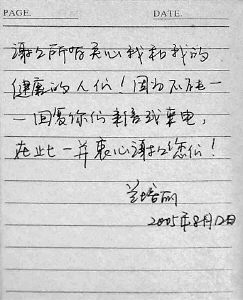 PAGE. DATE.
谢谢所有关心我和我的
健康的人们！因为不能一
一回复你们来信或来电，
在此一并衷心谢谢您们！
兰培丽
2005年8月12日